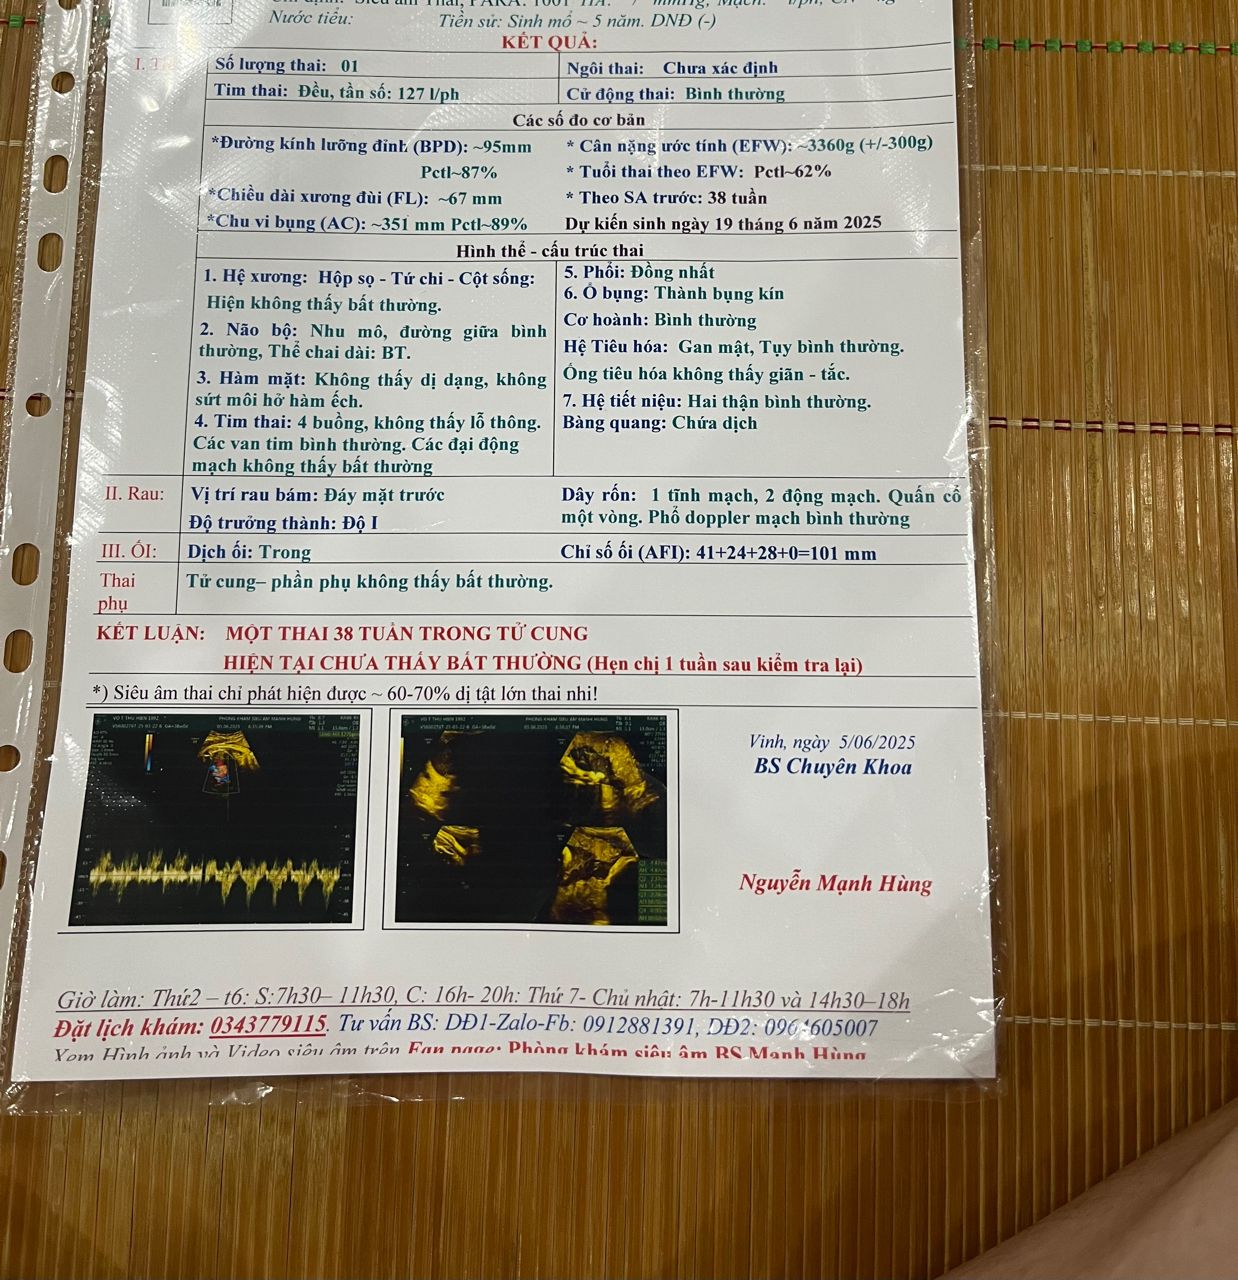 Nước tiểu: Tiền sử: Sinh mổ ~ 5 năm. DNĐ (-)
KẾT QUẢ:
Số lượng thai: 01
Ngôi thai: Chưa xác định
Tim thai: Đều, tần số: 127 l/ph
Cử động thai: Bình thường
Các số đo cơ bản
*Đường kính lưỡng đỉnh (BPD): ~95mm
Pctl~87%
*Chiều dài xương đùi (FL): ~67 mm
*Chu vi bụng (AC): ~351 mm Pctl~89%
* Cân nặng ước tính (EFW): ~3360g (+/-300g)
* Tuổi thai theo EFW: Pctl~62%
* Theo SA trước: 38 tuần
Dự kiến sinh ngày 19 tháng 6 năm 2025
Hình thể - cấu trúc thai
1. Hệ xương: Hộp sọ - Tứ chi - Cột sống:
Hiện không thấy bất thường.
2. Não bộ: Nhu mô, đường giữa bình
thường, Thể chai dài: BT.
3. Hàm mặt: Không thấy dị dạng, không
sứt môi hở hàm ếch.
4. Tim thai: 4 buồng, không thấy lỗ thông.
Các van tim bình thường. Các đại động
mạch không thấy bất thường
5. Phổi: Đồng nhất
6. Ổ bụng: Thành bụng kín
Cơ hoành: Bình thường
Hệ Tiêu hóa: Gan mật, Tụy bình thường.
Ống tiêu hóa không thấy giãn - tắc.
7. Hệ tiết niệu: Hai thận bình thường.
Bàng quang: Chứa dịch
II. Rau:
Vị trí rau bám: Đáy mặt trước
Độ trưởng thành: Độ I
Dây rốn: 1 tĩnh mạch, 2 động mạch. Quấn cổ
một vòng. Phổ doppler mạch bình thường
III. ỐI: Dịch ối: Trong
Chỉ số ối (AFI): 41+24+28+0=101 mm
Thai
phụ
Tử cung– phần phụ không thấy bất thường.
KẾT LUẬN: MỘT THAI 38 TUẦN TRONG TỬ CUNG
HIỆN TẠI CHƯA THẤY BẤT THƯỜNG (Hẹn chị 1 tuần sau kiểm tra lại)
*) Siêu âm thai chỉ phát hiện được ~ 60-70% dị tật lớn thai nhi!
Vinh, ngày 5/06/2025
BS Chuyên Khoa
Nguyễn Mạnh Hùng
Giờ làm: Thứ2 – t6: S:7h30– 11h30, C: 16h- 20h: Thứ 7- Chủ nhật: 7h-11h30 và 14h30–18h
Đặt lịch khám: 0343779115. Tư vấn BS: DĐ1-Zalo-Fb: 0912881391, DĐ2: 0964605007
Xem Hình ảnh và Video siêu âm trên Fan page: Phòng khám siêu âm BS Mạnh Hùng